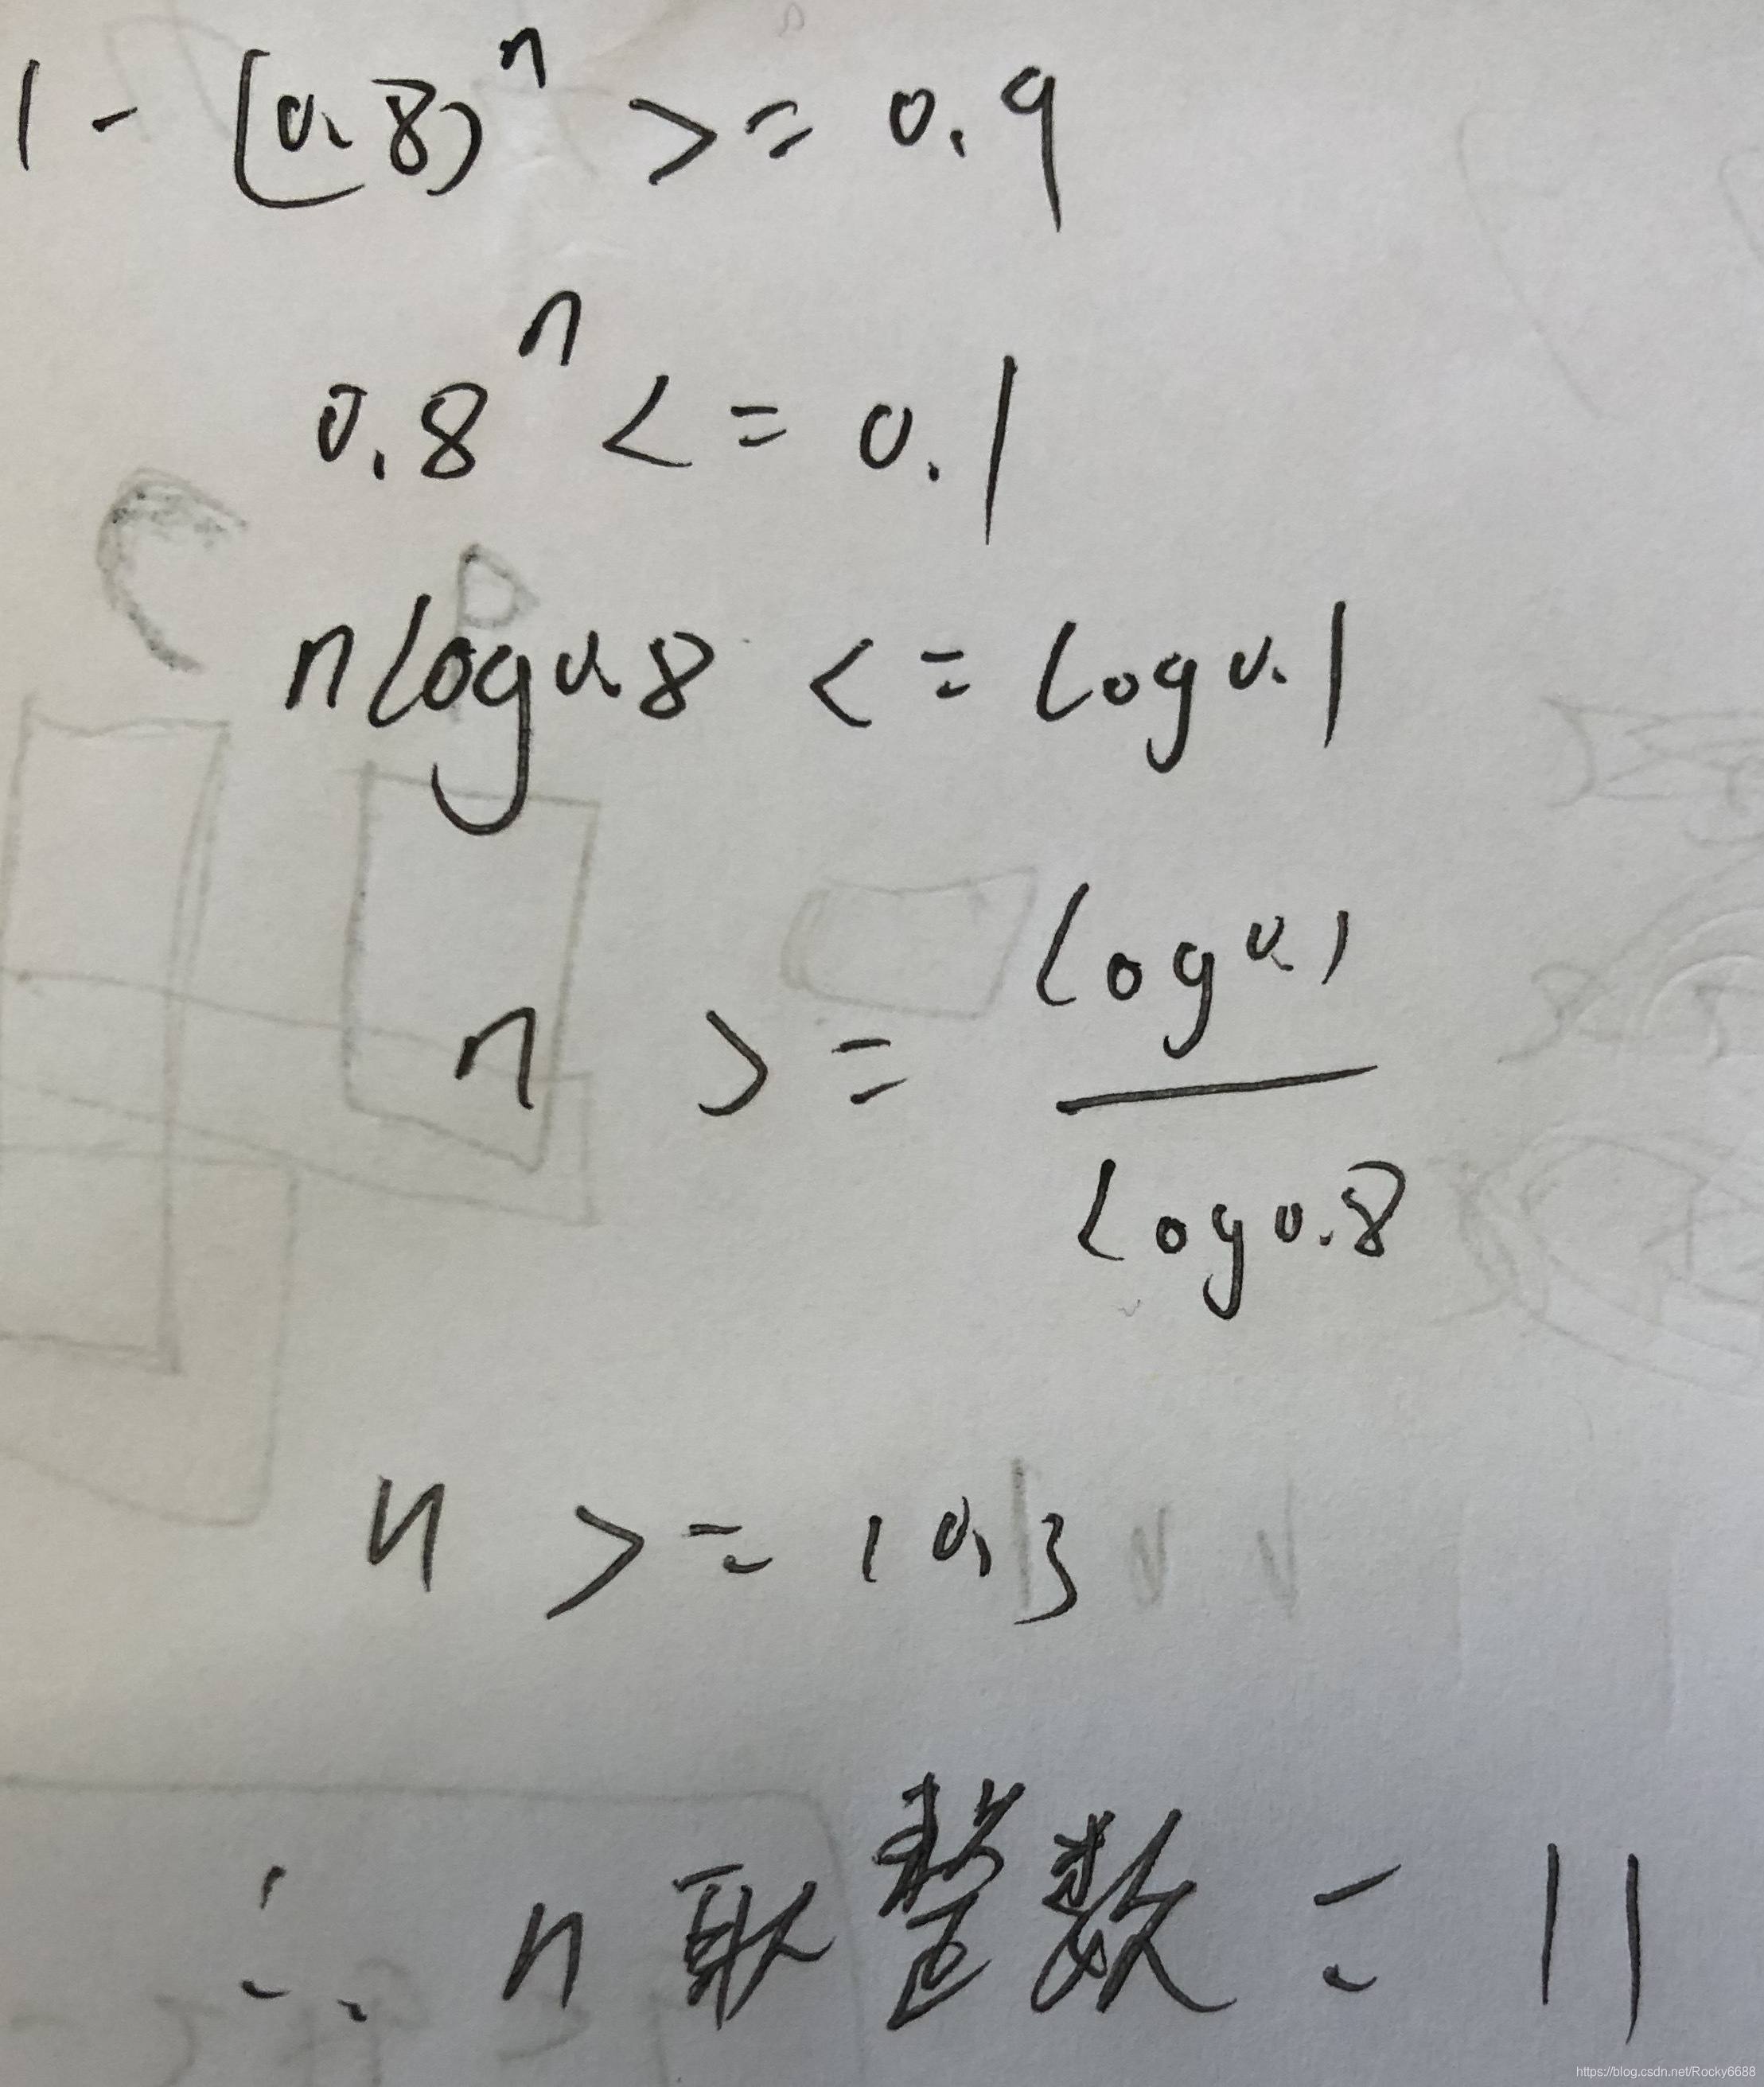 1 - (0.8)^n >= 0.9
0.8^n <= 0.1
nlog0.8 <= log0.1
n >= log0.1 / log0.8
n >= 10.3
∴ n 取整数 = 11
https://blog.csdn.net/Rocky6688